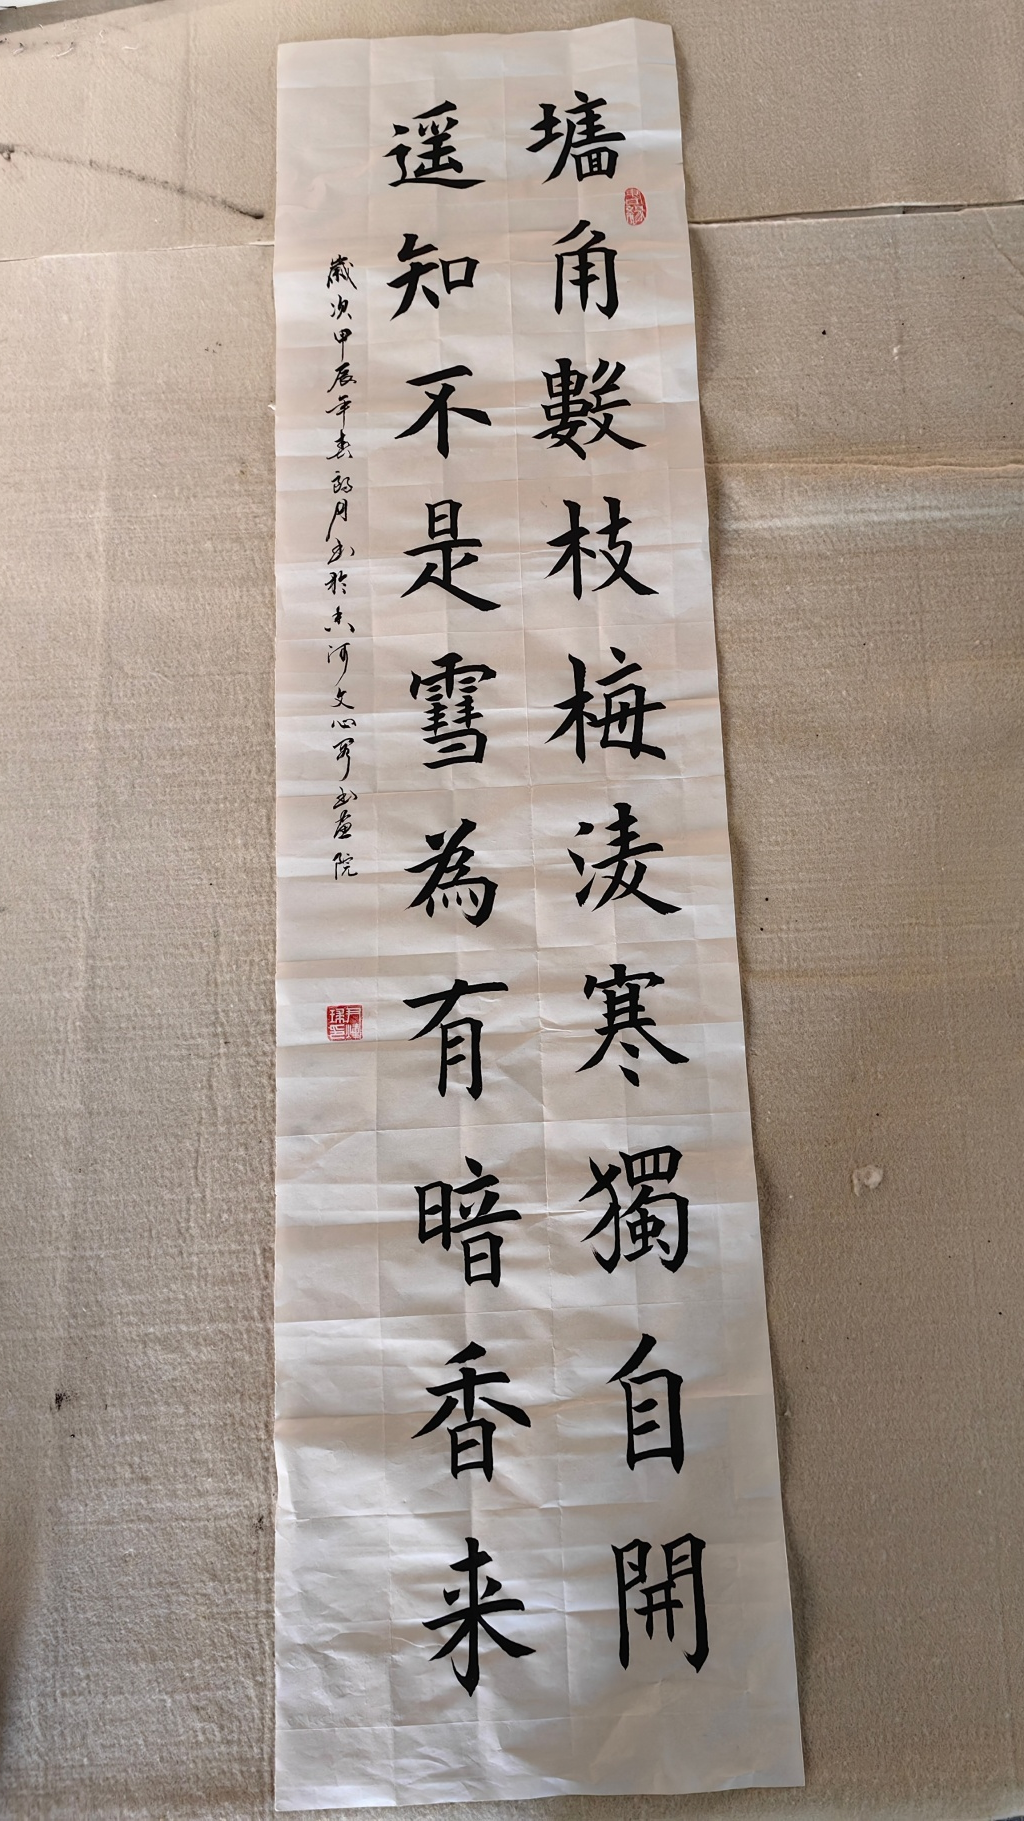 墻角數枝梅凌寒獨自開
遥知不是雪為有暗香来
歲次甲辰年春月书於香河文心阁书画院